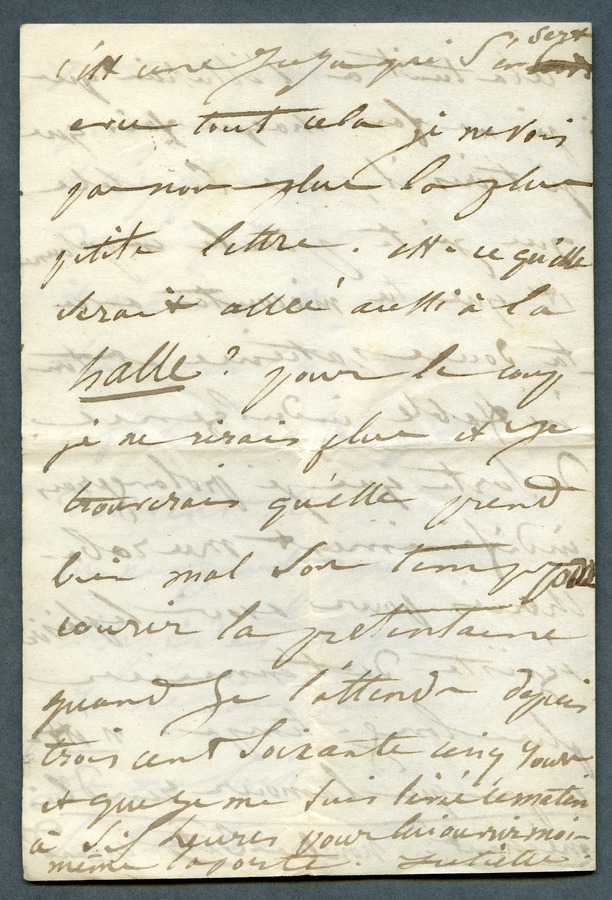 c'est une Juju qui s'en sert
avec tout cela je ne vois
pas non plus la plus
petite lettre. Est-ce qu'elle
serait allée aussi à la
halle? pour le coup
je ne rirais plus et je
trouverais qu'elle prend
bien mal son temps pour
courir la pretentaine
quand je l'attends depuis
trois cent soixante cinq jours
et que je me suis levée ce matin
à six heures pour lui ouvrir moi-
même la porte. Juliette